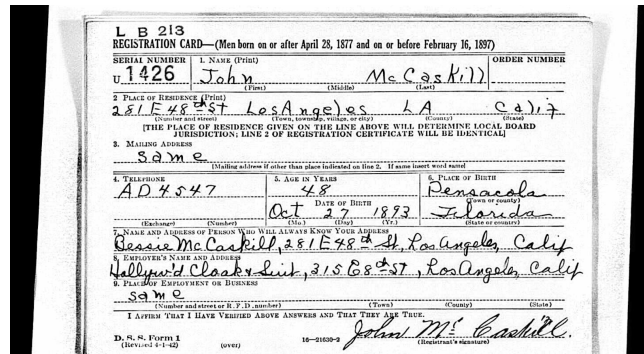 L B 213
REGISTRATION CARD—(Men born on or after April 28, 1877 and on or before February 16, 1897)
SERIAL NUMBER 1. NAME (Print) ORDER NUMBER
U 1426 John McCaskill
(First) (Middle) (Last)
2 PLACE OF RESIDENCE (Print)
281 E 48th St Los Angeles LA Calif
(Number and street) (Town, township, village, or city) (County) (State)
[THE PLACE OF RESIDENCE GIVEN ON THE LINE ABOVE WILL DETERMINE LOCAL BOARD
JURISDICTION; LINE 2 OF REGISTRATION CERTIFICATE WILL BE IDENTICAL]
3. MAILING ADDRESS
Same
[Mailing address if other than place indicated on line 2. If same insert word same]
4. TELEPHONE 5. AGE IN YEARS 6. PLACE OF BIRTH
AD 4547 48 Pensacola
DATE OF BIRTH (Town or county)
Oct 27 1893 Florida
(Exchange) (Number) (Mo.) (Day) (Yr.) (State or country)
7. NAME AND ADDRESS OF PERSON WHO WILL ALWAYS KNOW YOUR ADDRESS
Bessie McCaskill, 281 E 48th St, Los Angeles, Calif
8. EMPLOYER'S NAME AND ADDRESS
Hollyw'd Cloak & Suit, 315 E 8th ST, Los Angeles, Calif
9. PLACE OF EMPLOYMENT OR BUSINESS
Same
(Number and street or R. F. D. number) (Town) (County) (State)
I AFFIRM THAT I HAVE VERIFIED ABOVE ANSWERS AND THAT THEY ARE TRUE.
John Mc Caskill.
D. S. S. Form 1 16—21630-2 (Registrant's signature)
(Revised 4-1-42) (over)